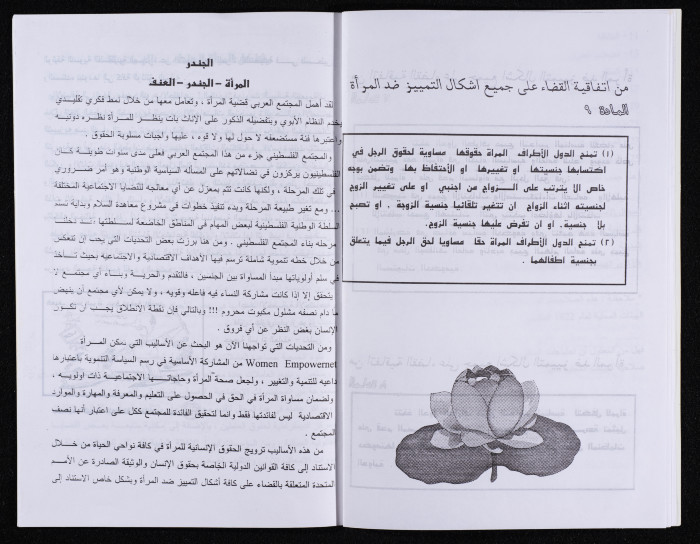 من اتفاقية القضاء على جميع اشكال التمييز ضد المرأة
المادة ٩
(١) تمنح الدول الأطراف المراة حقوقها مساوية لحقوق الرجل في
اكتسابها جنسيتها او تغييرها او الأحتفاظ بها. وتضمن بوجه
خاص الا يترتب على الزواج من اجنبي او على تغيير الزوج
لجنسيته اثناء الزواج ان تتغير تلقائيا جنسية الزوجة . او تصبح
بلا جنسية. او ان تفرض عليها جنسية الزوج.
(٢) تمنح الدول الأطراف المراة حقا مساويا لحق الرجل فيما يتعلق
بجنسية اطفالهما .
الجندر
المرأة – الجندر – العنف
لقد أهمل المجتمع العربي قضية المرأة ، وتعامل معها من خلال نمط فكري تقليدي
يخدم النظام الأبوي وبتفضيله الذكور على الإناث بات ينظر للمرأة نظره دونية
واعتبرها فئة مستضعفه لا حول لها ولا قوه ، عليها واجبات مسلوبة الحقوق .
والمجتمع الفلسطيني جزء من هذا المجتمع العربي فعلى مدى سنوات طويلة كان
الفلسطينيون يركزون في نضالاتهم على المسأله السياسية والوطنية وهو أمر ضروري
في تلك المرحلة ، ولكنها كانت تتم بمعزل عن أي معالجه للقضايا الاجتماعية المختلفة
... ومع تغير طبيعة المرحلة وبدء تنفيذ خطوات في مشروع معاهدة السلام وبداية تسلم
السلطة الوطنية الفلسطينية لبعض المهام في المناطق الخاضعة لسلطتها ، لقد دخلت
مرحله بناء المجتمع الفلسطيني . ومن هنا برزت بعض التحديات التي يجب إن تنعكس
من خلال خطه تنموية شاملة ترسم فيها الأهداف الاقتصادية والاجتماعية بحيث تأخذ
في سلم أولوياتها مبدأ المساواة بين الجنسين ، فالتقدم والحرية وبناء أي مجتمع لا
يتحقق إلا إذا كانت مشاركة النساء فيه فاعله وقويه ، ولا يمكن لأي مجتمع أن ينهض
ما دام نصفه مشلول مكبوت محروم !!! وبالتالي فإن نقطة الانطلاق يجب ان تكون
الإنسان بغض النظر عن أي فروق .
ومن التحديات التي تواجهنا الآن هو البحث عن الأساليب التي يمكن المرأة
Women Empowernet من المشاركة الأساسية في رسم السياسة التنموية باعتبارها
داعيه للتنمية والتغيير ، ولجعل صحة المرأة وحاجاتها الاجتماعية ذات اولويه .
ولضمان مساواة المرأة في الحق في الحصول على التعليم والمعرفة والمهارة والموارد
الاقتصادية ليس لفائدتها فقط وانما لتحقيق الفائدة للمجتمع ككل على اعتبار أنها نصف
المجتمع .
من هذه الأساليب ترويج الحقوق الإنسانية للمرأة في كافة نواحي الحياة من خلال
الاستناد إلى كافة القوانين الدولية الخاصة بحقوق الإنسان والوثيقة الصادرة عن الأمم
المتحدة المتعلقة بالقضاء على كافة أشكال التمييز ضد المرأة وبشكل خاص الاستناد إلى